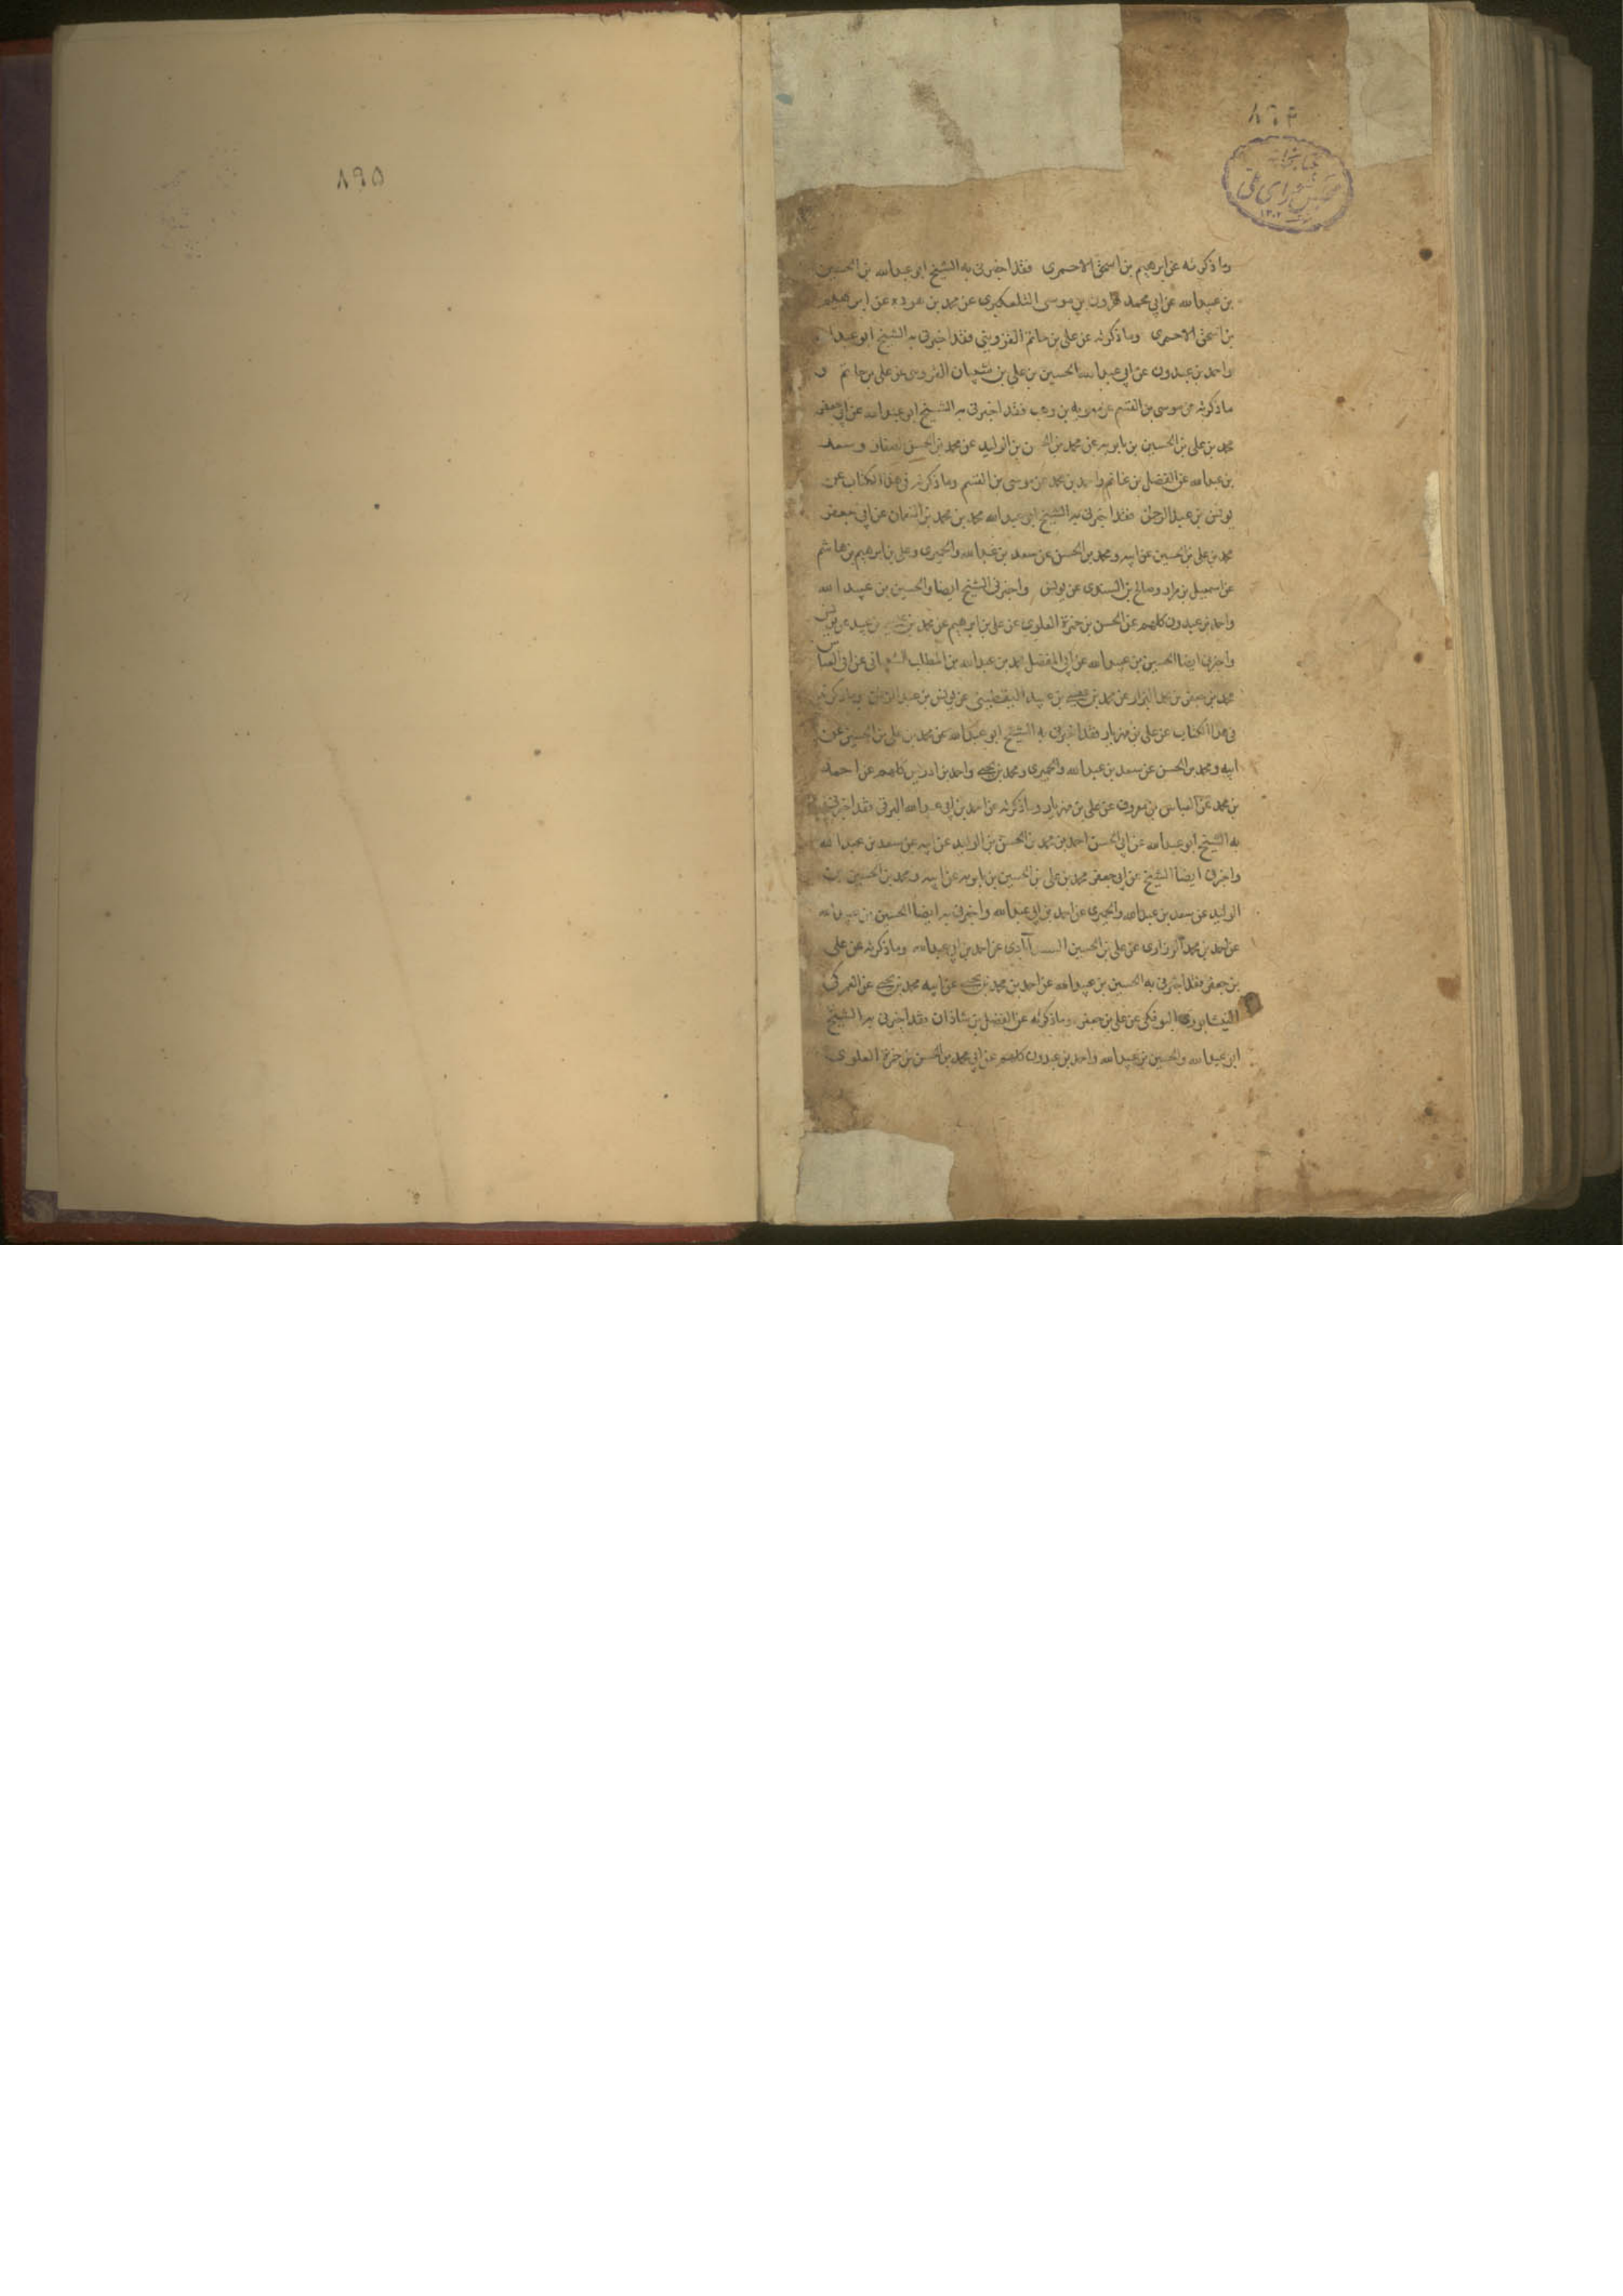 ٨٩٤
کتابخانه
مجلس شورای ملی
١٣٠٢
وماذكرته عن ابرهيم بن اسحق الاحمرى فقد اخبرنى به الشيخ ابو عبدالله بن الحسين
بن عبيدالله عن ابى محمد هرون بن موسى التلعكبرى عن محمد بن هوده عن ابرهيم
بن اسحق الاحمرى وماذكرته عن على بن حاتم القزوينى فقد اخبرنى به الشيخ ابو عبدالله
واحمد بن عبدون عن ابى عبدالله الحسين بن على بن شيبان القزوينى عن على بن حاتم و
ماذكرته عن موسى بن القسم عن معويه بن وهب فقد اخبرنى به الشيخ ابو عبدالله عن ابى جعفر
محمد بن على بن الحسين بن بابويه عن محمد بن الحسن بن الوليد عن محمد بن الحسن الصفار وسعد
بن عبدالله عن الفضل بن غانم واحمد بن محمد عن موسى بن القسم وماذكرته فى هذا الكتاب عن
يونس بن عبدالرحمن فقد اخبرنى به الشيخ ابو عبدالله محمد بن محمد بن النعمان عن ابى جعفر
محمد بن على بن الحسين عن ابيه ومحمد بن الحسن عن سعد بن عبدالله والحميرى وعلى بن ابرهيم بن هاشم
عن اسمعيل بن مرار وصالح بن السندى عن يونس واخبرنى الشيخ ايضا والحسين بن عبيدالله
واحمد بن عبدون كلهم عن الحسن بن حمزة العلوى عن على بن ابرهيم عن محمد بن عيسى بن عبيد عن يونس
واخبرنى ايضا الحسين بن عبيدالله عن ابى المفضل محمد بن عبدالله بن المطلب الشيبانى عن ابى العباس
محمد بن جعفر بن محمد البزاز عن محمد بن عيسى بن عبيد اليقطينى عن يونس بن عبدالرحمن وماذكرته
فى هذا الكتاب عن على بن مهزيار فقد اخبرنى به الشيخ ابو عبدالله عن محمد بن على بن الحسين عن
ابيه ومحمد بن الحسن عن سعد بن عبدالله والحميرى ومحمد بن يحيى واحمد بن ادريس كلهم عن احمد
بن محمد عن العباس بن معروف عن على بن مهزيار وماذكرته عن احمد بن ابى عبدالله البرقى فقد اخبرنى
به الشيخ ابو عبدالله عن ابى الحسن احمد بن محمد بن الحسن بن الوليد عن ابيه عن سعد بن عبدالله
واخبرنى ايضا الشيخ عن ابى جعفر محمد بن على بن الحسين بن بابويه عن ابيه ومحمد بن الحسين بن
الوليد عن سعد بن عبدالله والحميرى عن احمد بن ابى عبدالله واخبرنى به ايضا الحسين بن عبيدالله
عن احمد بن محمد الزرارى عن على بن الحسين السعدآبادى عن احمد بن ابى عبدالله وماذكرته عن على
بن جعفر فقد اخبرنى به الحسين بن عبيدالله عن احمد بن محمد بن يحيى عن ابيه محمد بن يحيى عن العمركى
النيشابورى البوفكى عن على بن جعفر وماذكرته عن الفضل بن شاذان فقد اخبرنى به الشيخ
ابو عبدالله والحسين بن عبيدالله واحمد بن عبدون كلهم عن ابى محمد بن الحسن بن حمزة العلوى
٨٩٥